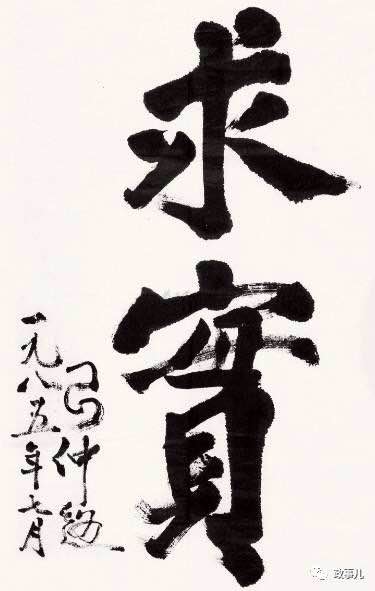 求實
習仲勛
一九八五年七月
政事儿